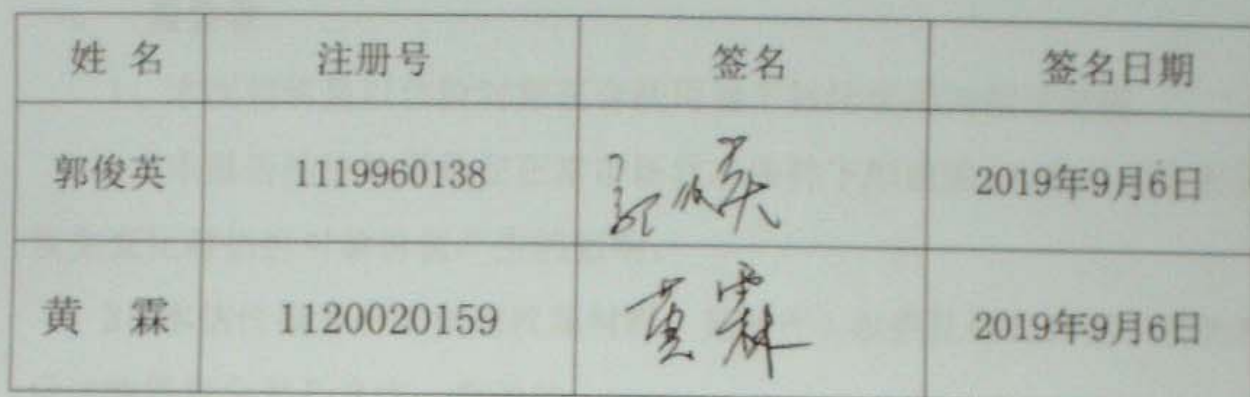 姓 名 注册号 签名 签名日期
郭俊英 1119960138 郭俊英 2019年9月6日
黄 霖 1120020159 黄霖 2019年9月6日